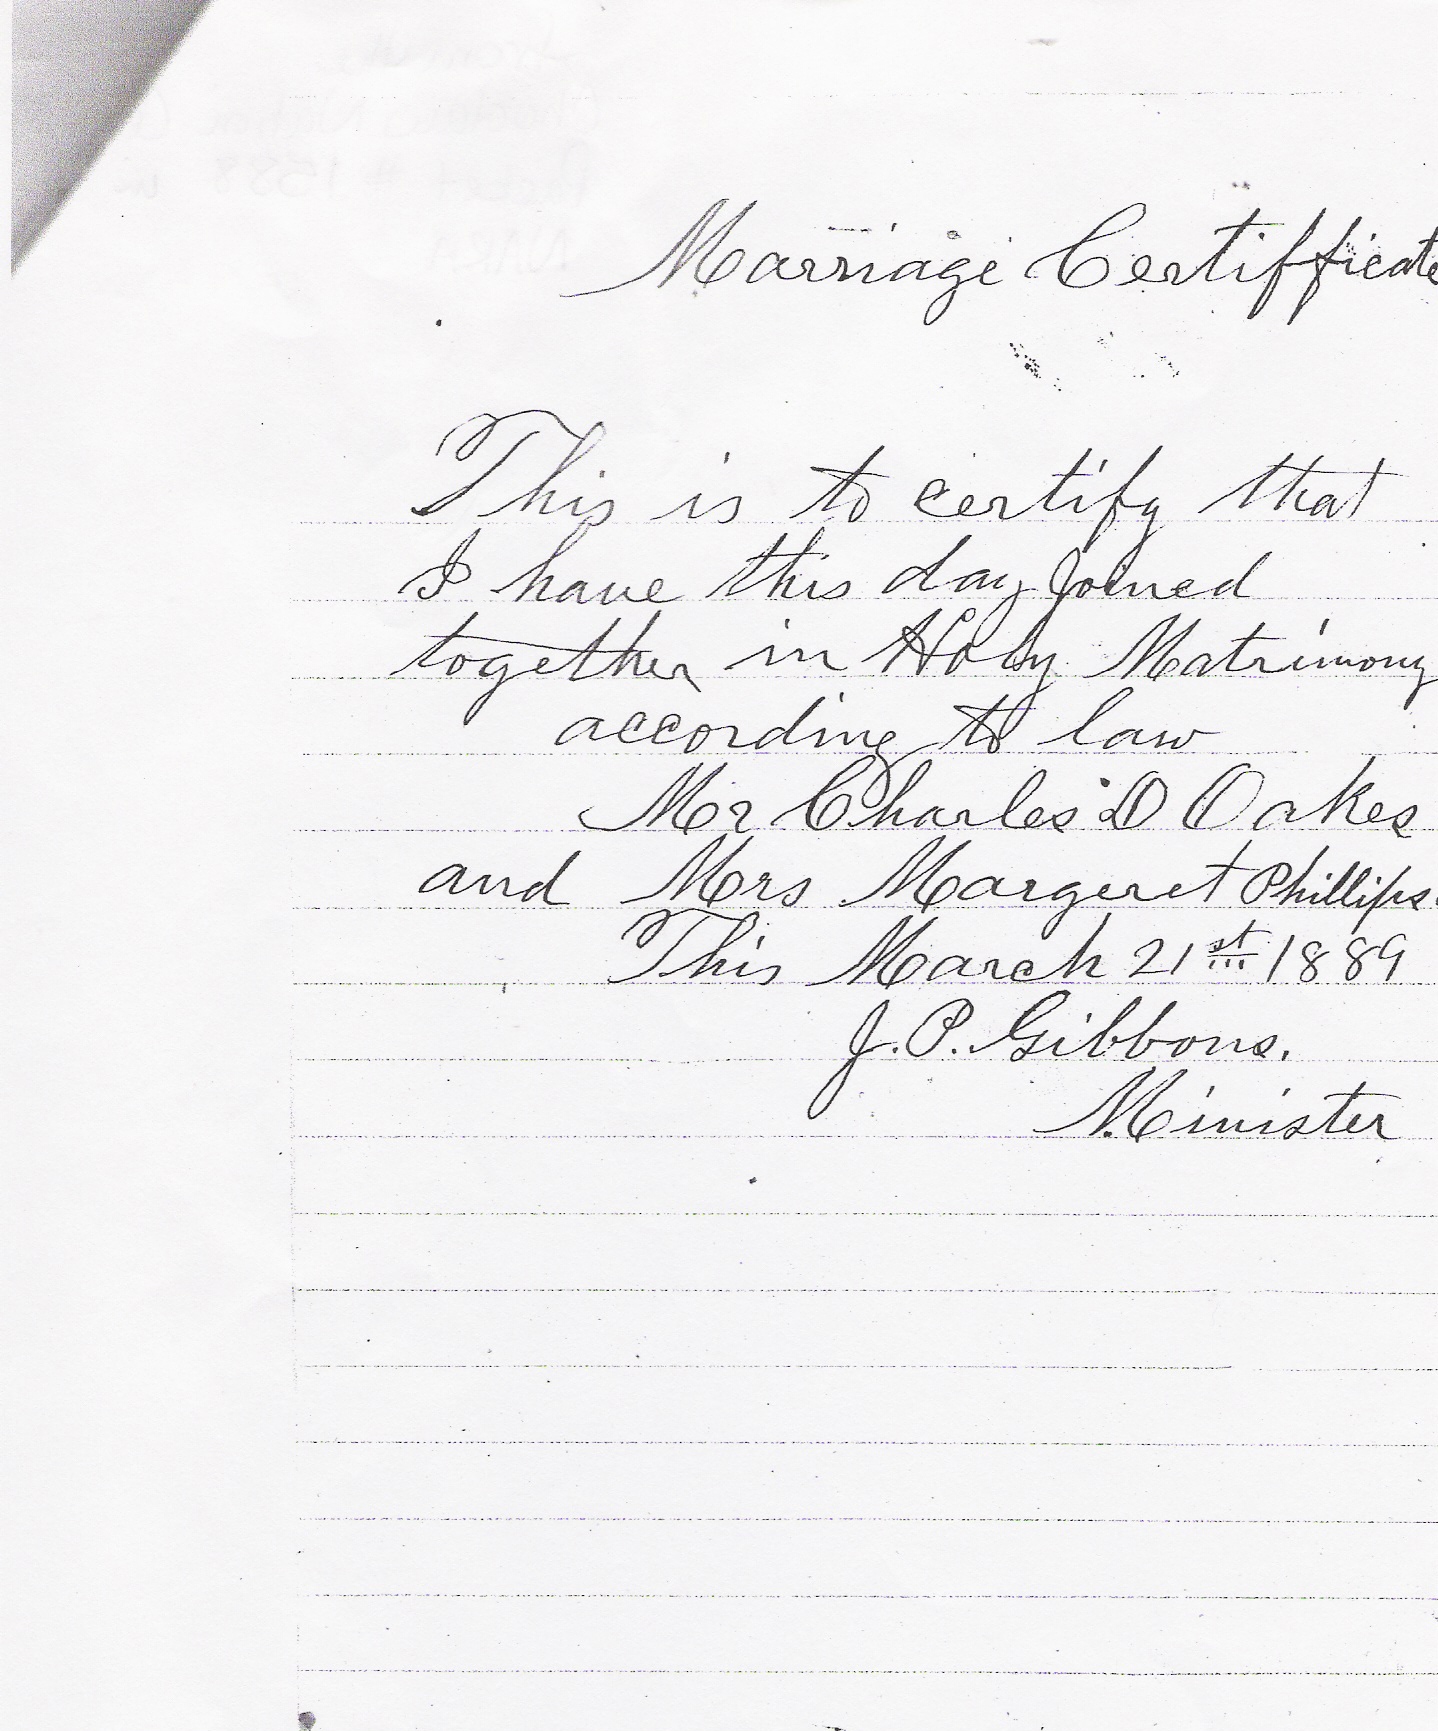 Marriage Certifficate
This is to certify that
I have this day Joined
together in Holy Matrimony
according to law
Mr Charles D Oakes
and Mrs Margeret Phillips.
This March 21st 1889
J. P. Gibbons.
Minister